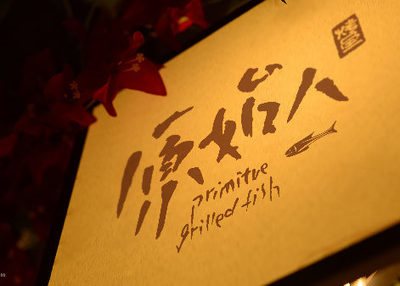 原始人
primitive
grilled fish